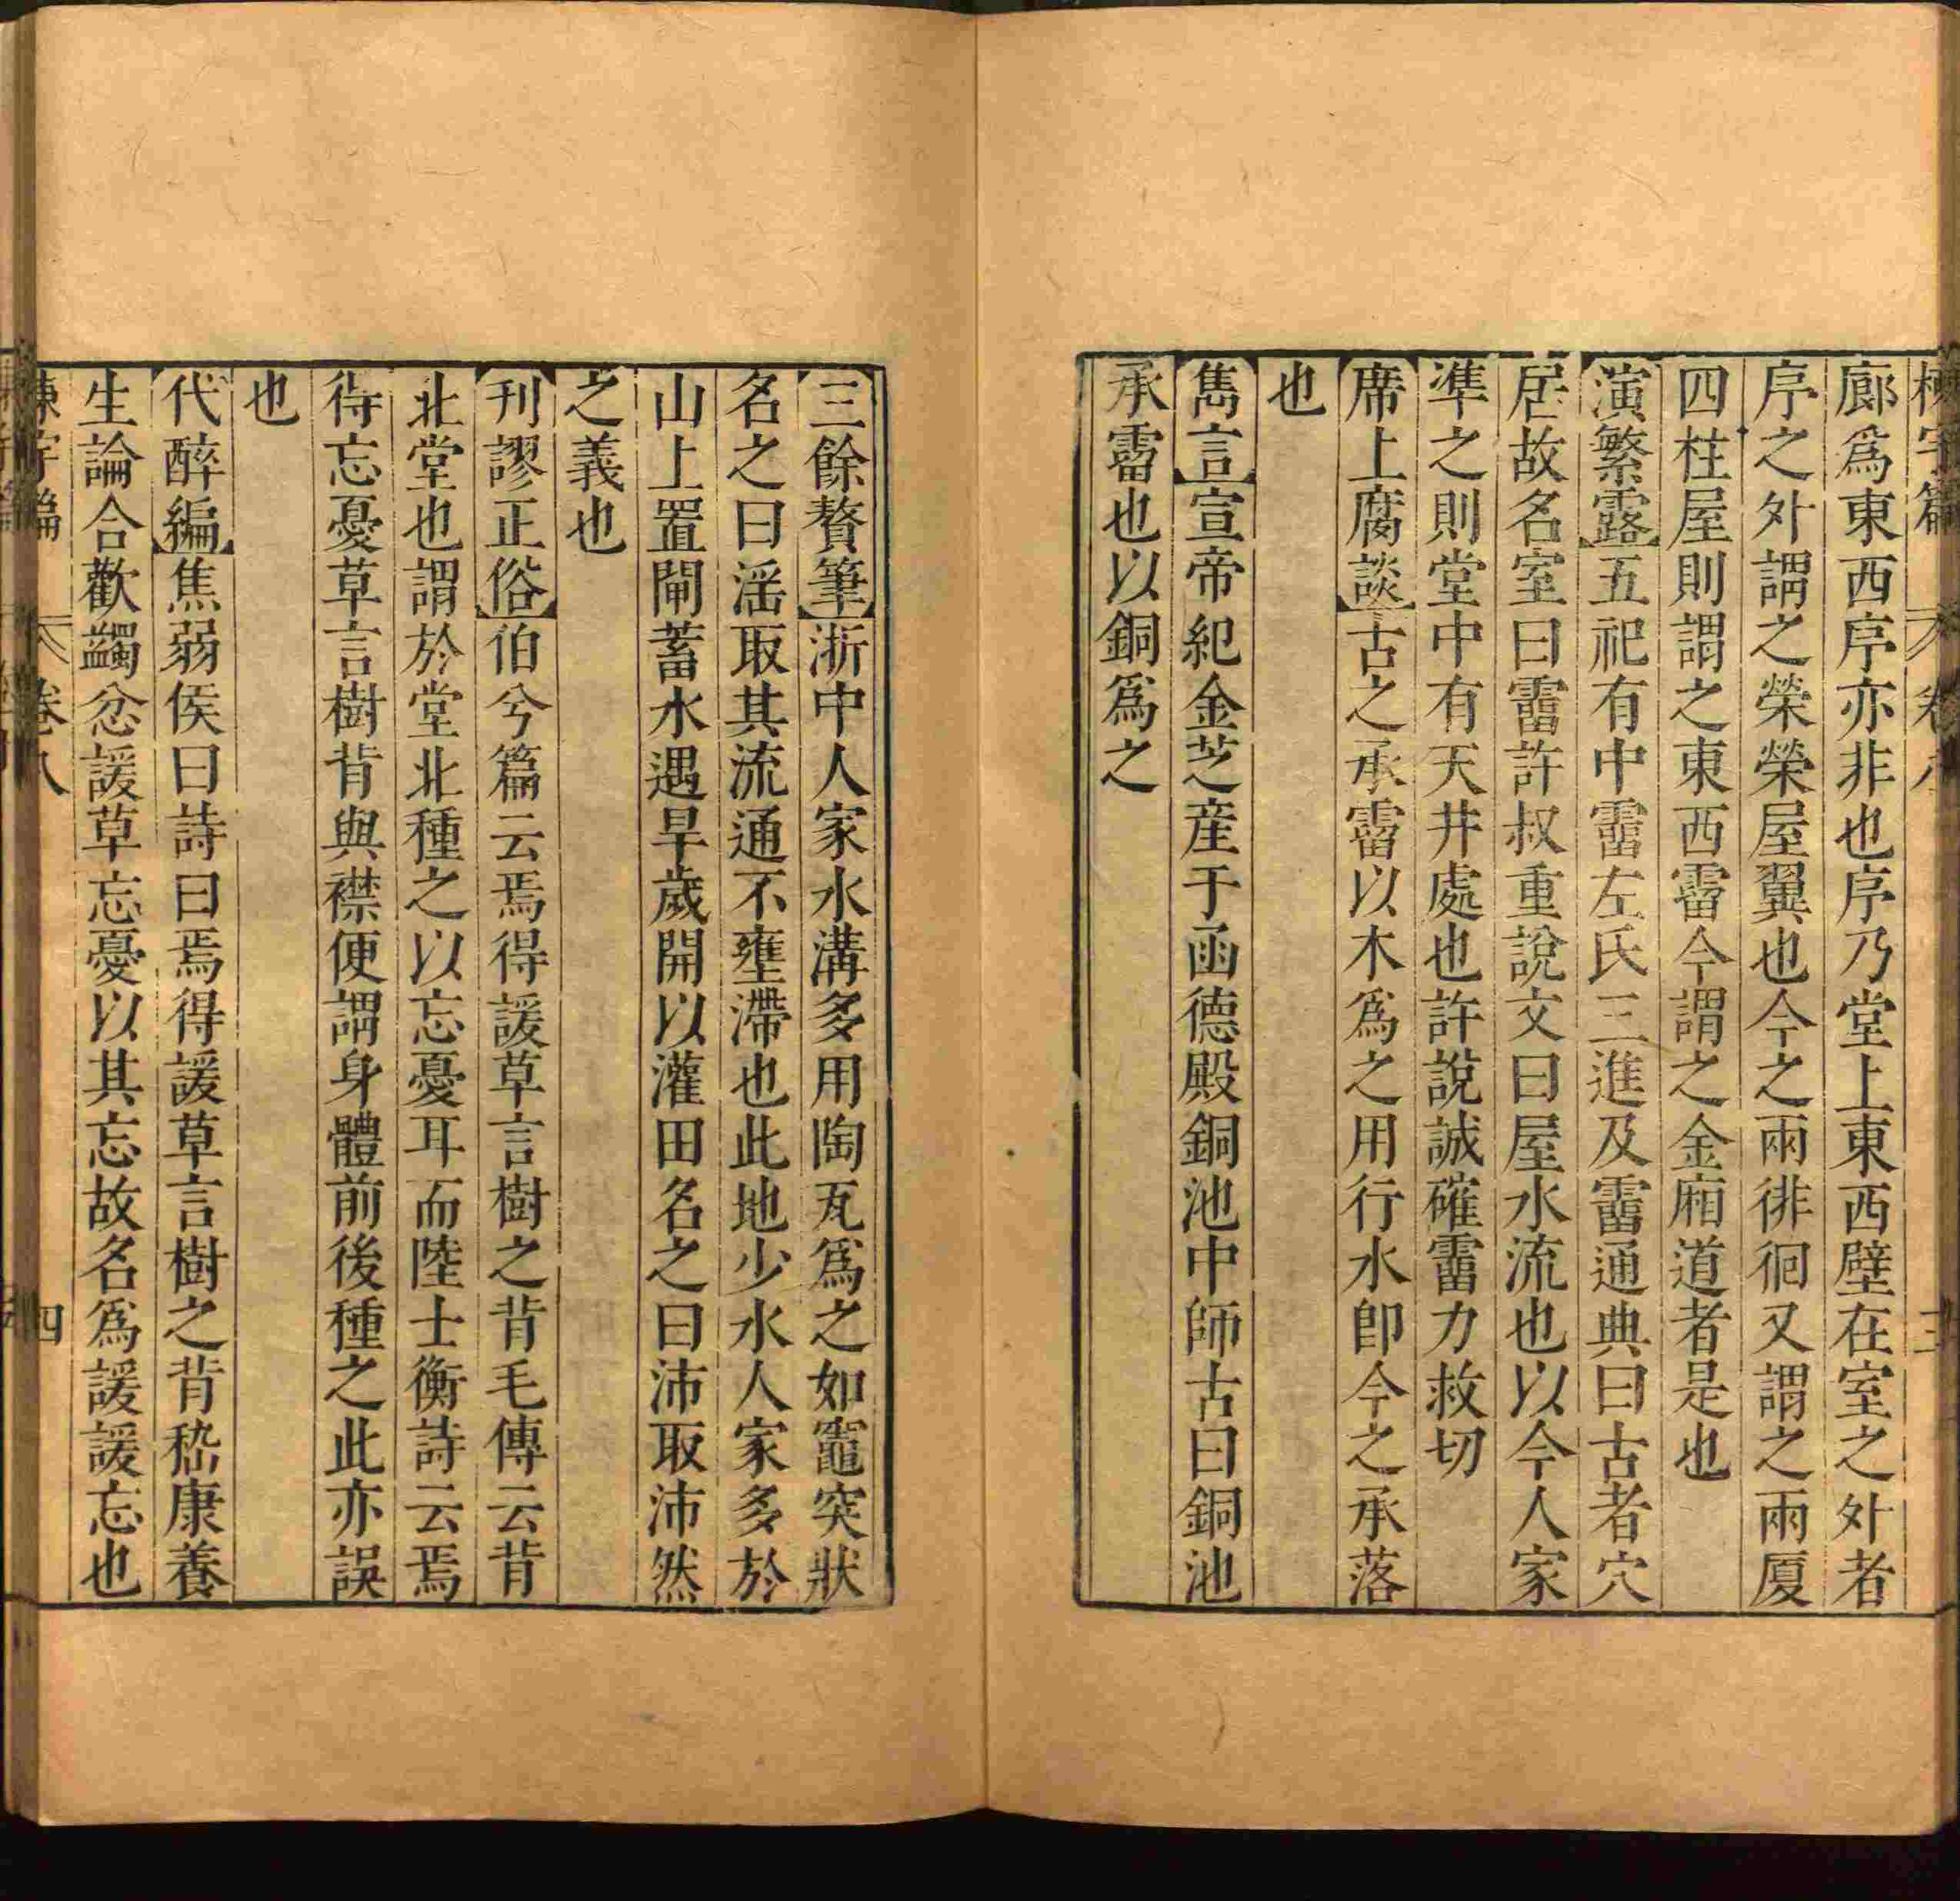 廊爲東西序亦非也序乃堂上東西壁在室之外者
序之外謂之榮榮屋翼也今之兩徘徊又謂之兩厦
四柱屋則謂之東西霤今謂之金廂道者是也
演繁露五祀有中霤左氏三進及霤通典曰古者穴
居故名室曰霤許叔重說文曰屋水流也以今人家
準之則堂中有天井處也許說誠確霤力救切
席上腐談古之承霤以木爲之用行水卽今之承落
也
雋言宣帝紀金芝産于函德殿銅池中師古曰銅池
承霤也以銅爲之
三餘贅筆浙中人家水溝多用陶瓦爲之如竈突狀
名之曰滛取其流通不壅滯也此地少水人家多於
山上置閘蓄水遇旱歲開以灌田名之曰沛取沛然
之義也
刊謬正俗伯兮篇云焉得諼草言樹之背毛傳云背
北堂也謂於堂北種之以忘憂耳而陸士衡詩云焉
得忘憂草言樹背與襟便謂身體前後種之此亦誤
也
代醉編焦弱侯曰詩曰焉得諼草言樹之背嵇康養
生論合歡蠲忿諼草忘憂以其忘故名爲諼諼忘也
卷八
四